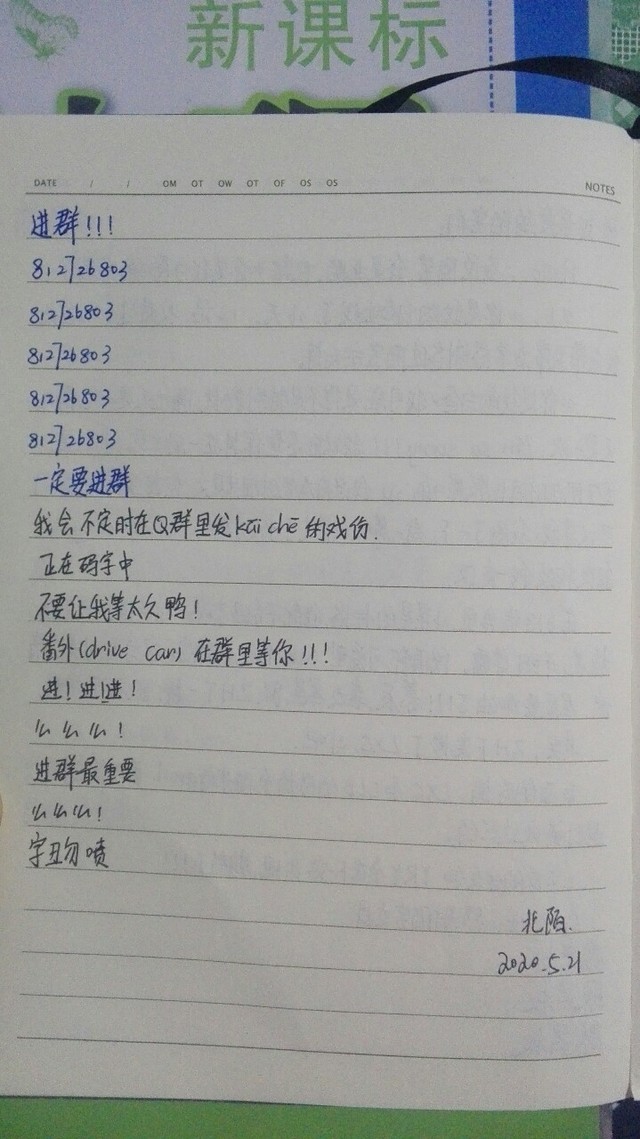 新课标
DATE / / OM OT OW OT OF OS OS NOTES
进群!!!
812726803
812726803
812726803
812726803
812726803
一定要进群
我会不定时在Q群里发kāi chē的戏份.
正在码字中
不要让我等太久鸭!
番外(drive car) 在群里等你!!!
进!进!进!
么么么!
进群最重要
么么么!
字丑勿喷
北陌.
2020.5.21